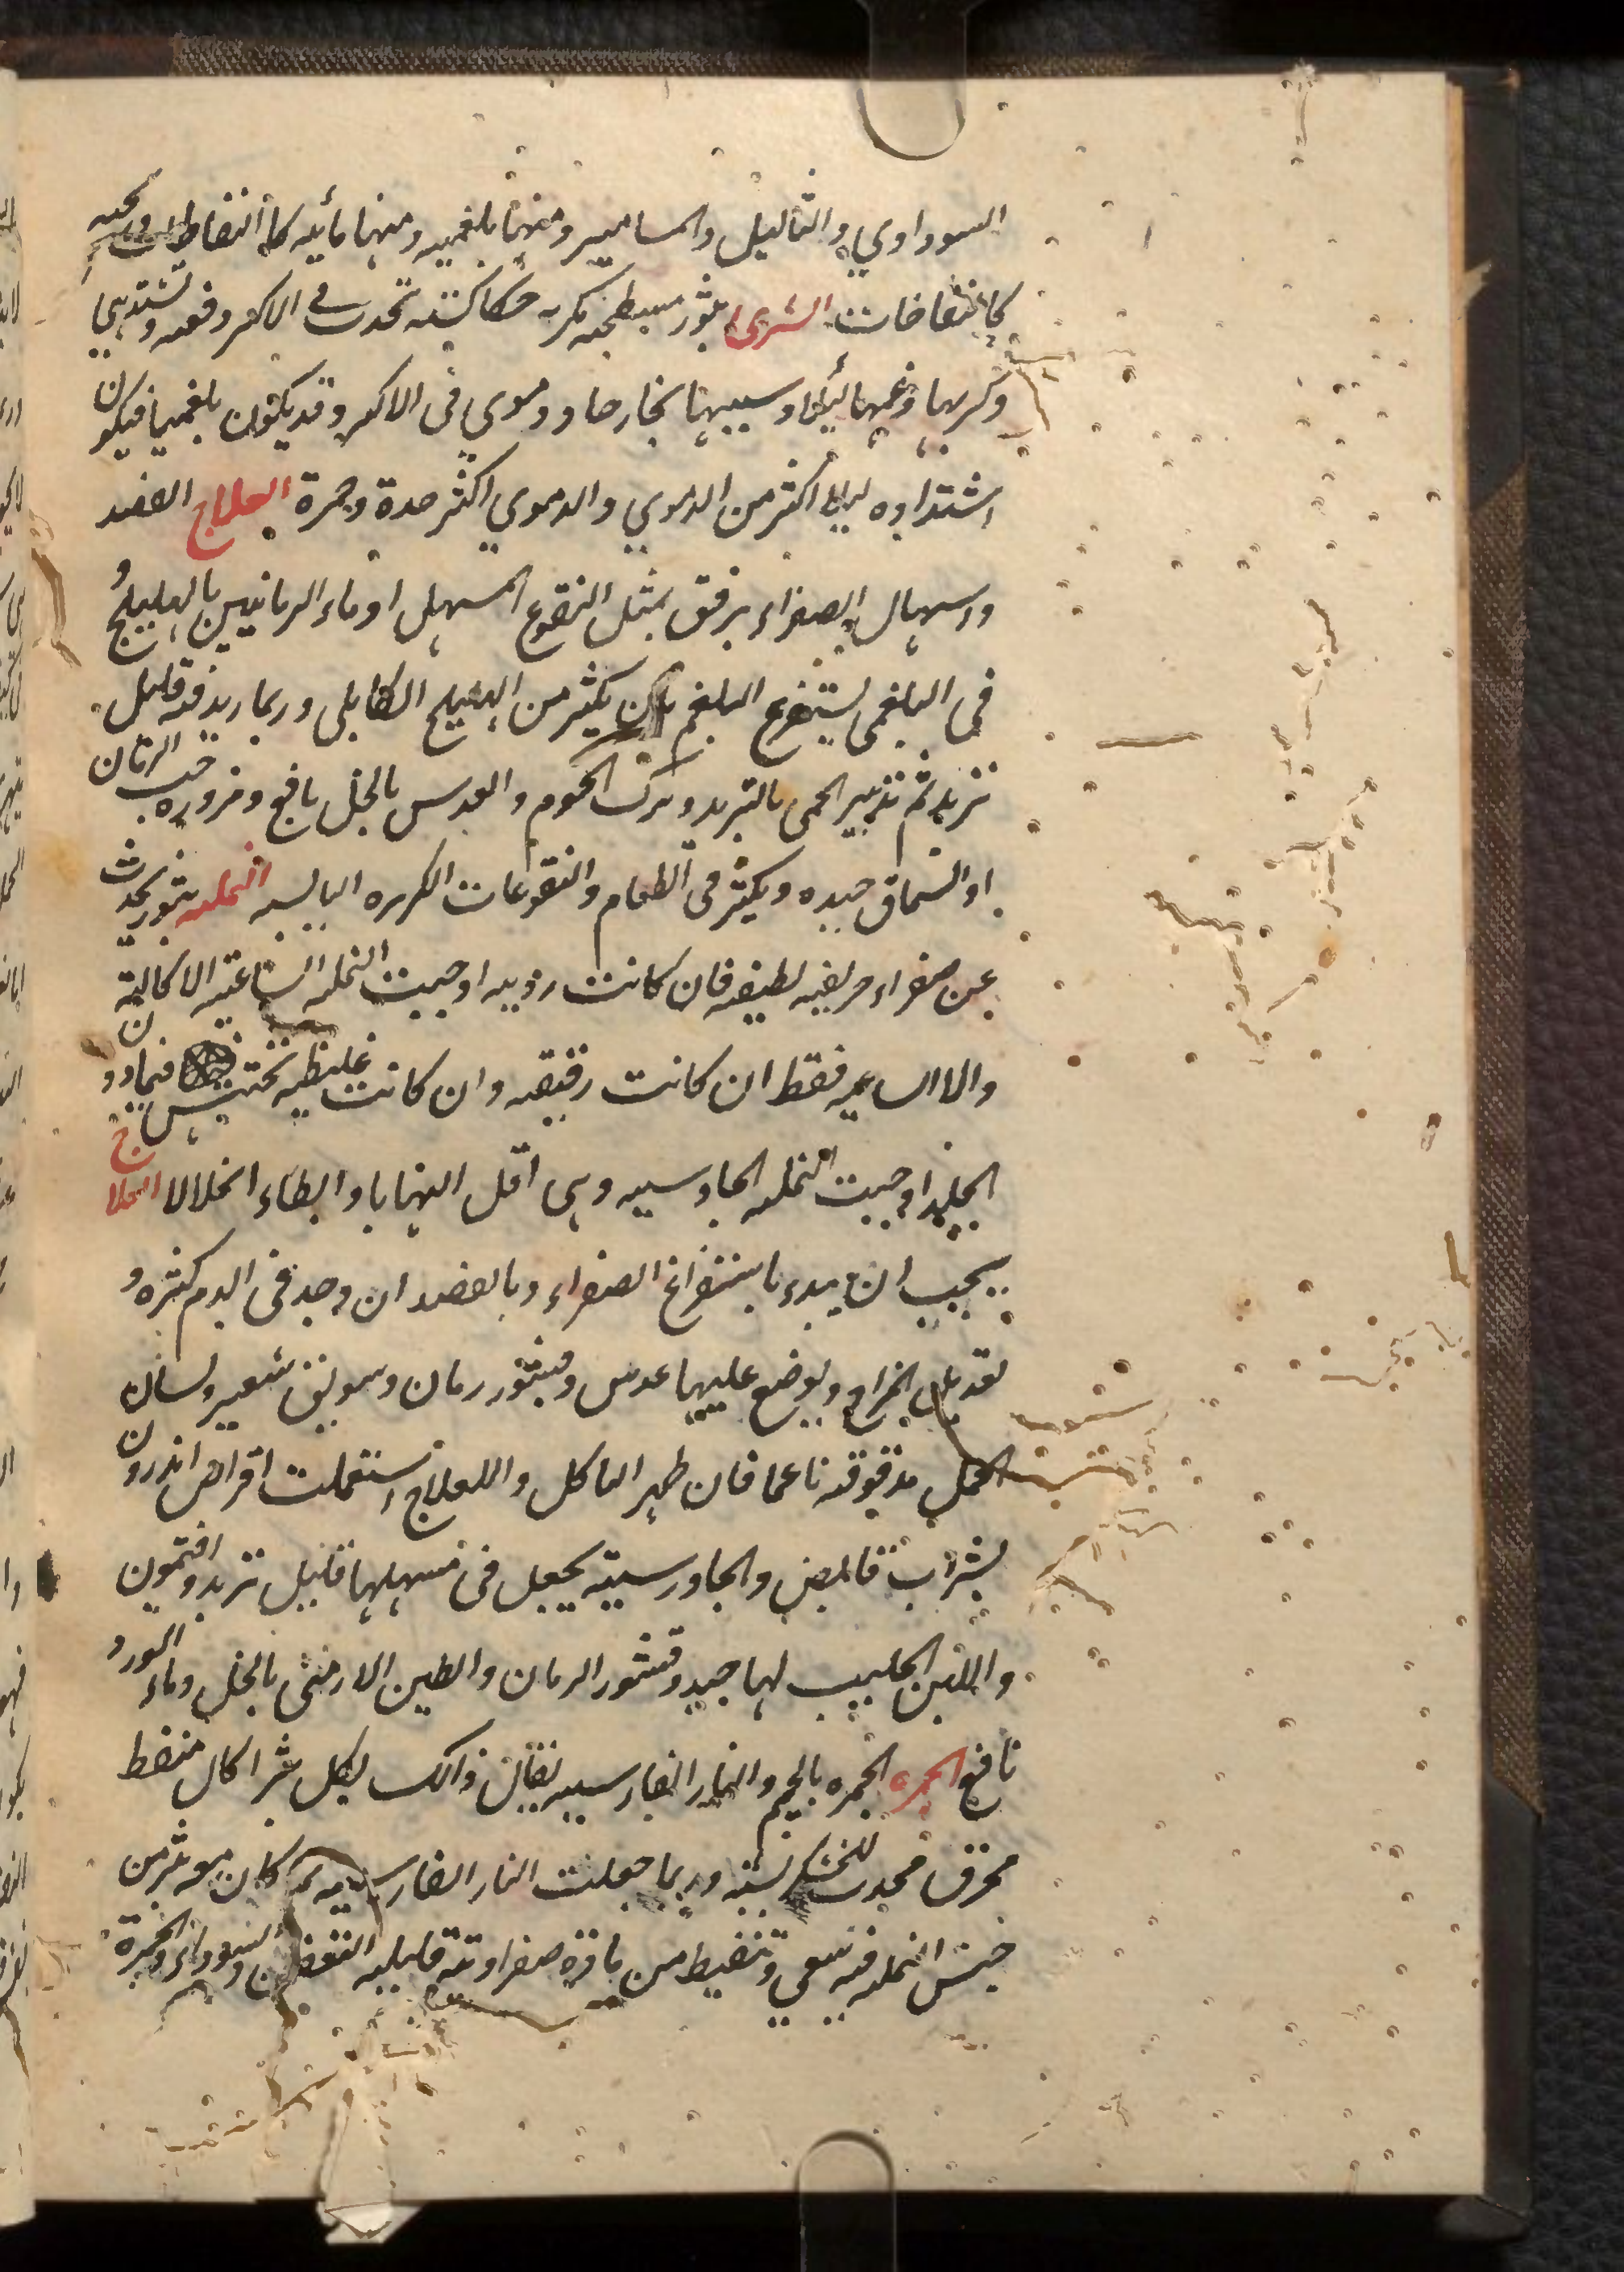 السوداوي والثآليل والمسامير ومنها بلغميه ومنها مائيه كالنفاطات وريحيه
كانتفاخات الشرى بثور مسطحه مكربه حكاكته تحدث فى الاكثر دفعه وتشتد هي
وكربها وغمها ليلا وسببها بخار حاد دموي فى الاكثر وقد يكون بلغميا فيكون
اشتداده ليلا اكثر من الدموي والدموي اكثر حدة وحمرة العلاج الفصد
واسهال الصفراء برفق بمثل النقوع المسهل او ماء الرمانيين بالهليلج و
فى البلغمى يستفرغ البلغم بان يكثر من الهليلج الكابلى وربما زيد فيه قليل
تربد ثم تدبير الحمى بالتبريد وترك اللحوم والعدس بالخل نافع ومزوره حب الرمان
او السماق جيده ويكثر فى الطعام والنقوعات الكزبره اليابسه النمله بثور تحدث
عن صفراء حريفيه لطيفه فان كانت رديه اوجبت النمله الساعيه الاكاليه
والا الساعيه فقط ان كانت رقيقه وان كانت غليظه تحتبس فيما دون
الجلد اوجبت النمله الجاورسيه وهى اقل التهابا وابطاء انحلالا العلاج
يجب ان يبدء باستفراغ الصفراء وبالفصد ان وجد فى الدم كثره و
بعد ويوضع عليها عدس وقشور رمان وسويق شعير ولسان
الحمل مدقوقه ناعما فان ظهر التاكل والا استعملت اقراص اندرون
بشراب قابض والجاورسيه يجعل فى مسهلها قليل تربد وافتمون
واللبن الحليب لها جيد وقشور الرمان والطين الارمنى بالخل وماء الورد
نافع الجمره الجمره بالجيم والنار الفارسيه يقال ذلك لكل بثر اكال منفط
محرق محدث للخشكريشه وربما جعلت النار الفارسيه لما كان هو بثر من
جنس النمله فيه سعي وتنفيط من مادة صفراوية قليله التعفن والسوداء والجمرة